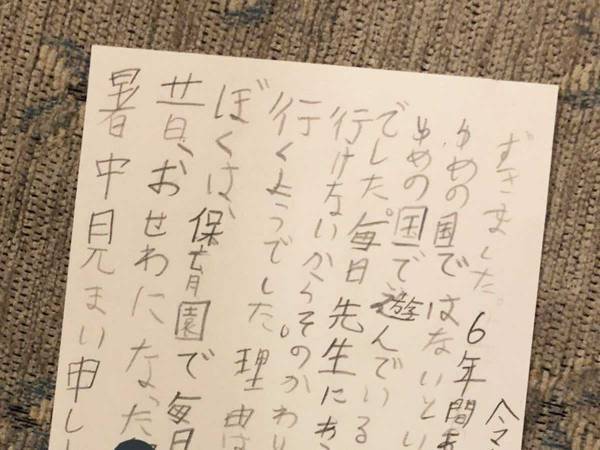 暑中見まい申し
昔、おせわになった
ぼくは、保育園で毎日
行くようでした。理由は
行けないから。そのかわり
でした。毎日先生にあ
ゆめの国で遊んでいる
ゆめの国ではないとい
ずきました。6年間
令